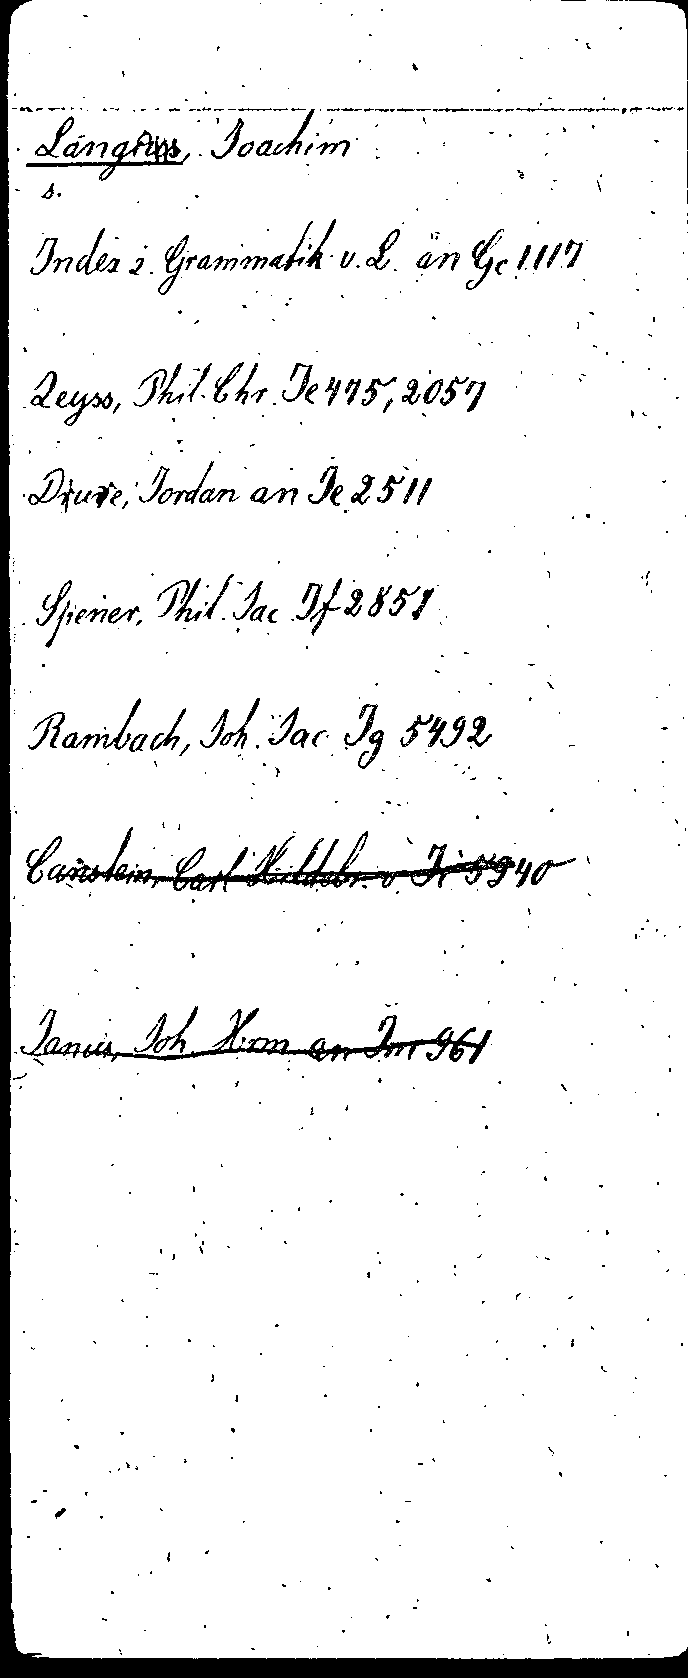 Lange, Joachim
s.
Index z. Grammatik v. L. an Gc 1117
Zeyss, Phil. Chr. Je 475, 2057
Druve, Jordan an Je 2511
Spener, Phil. Jac If 2851
Rambach, Joh. Jac Ig 5492
Canstein, Carl Hildebr. v Ii 5940
Janus, Joh. Hrm an Im 961